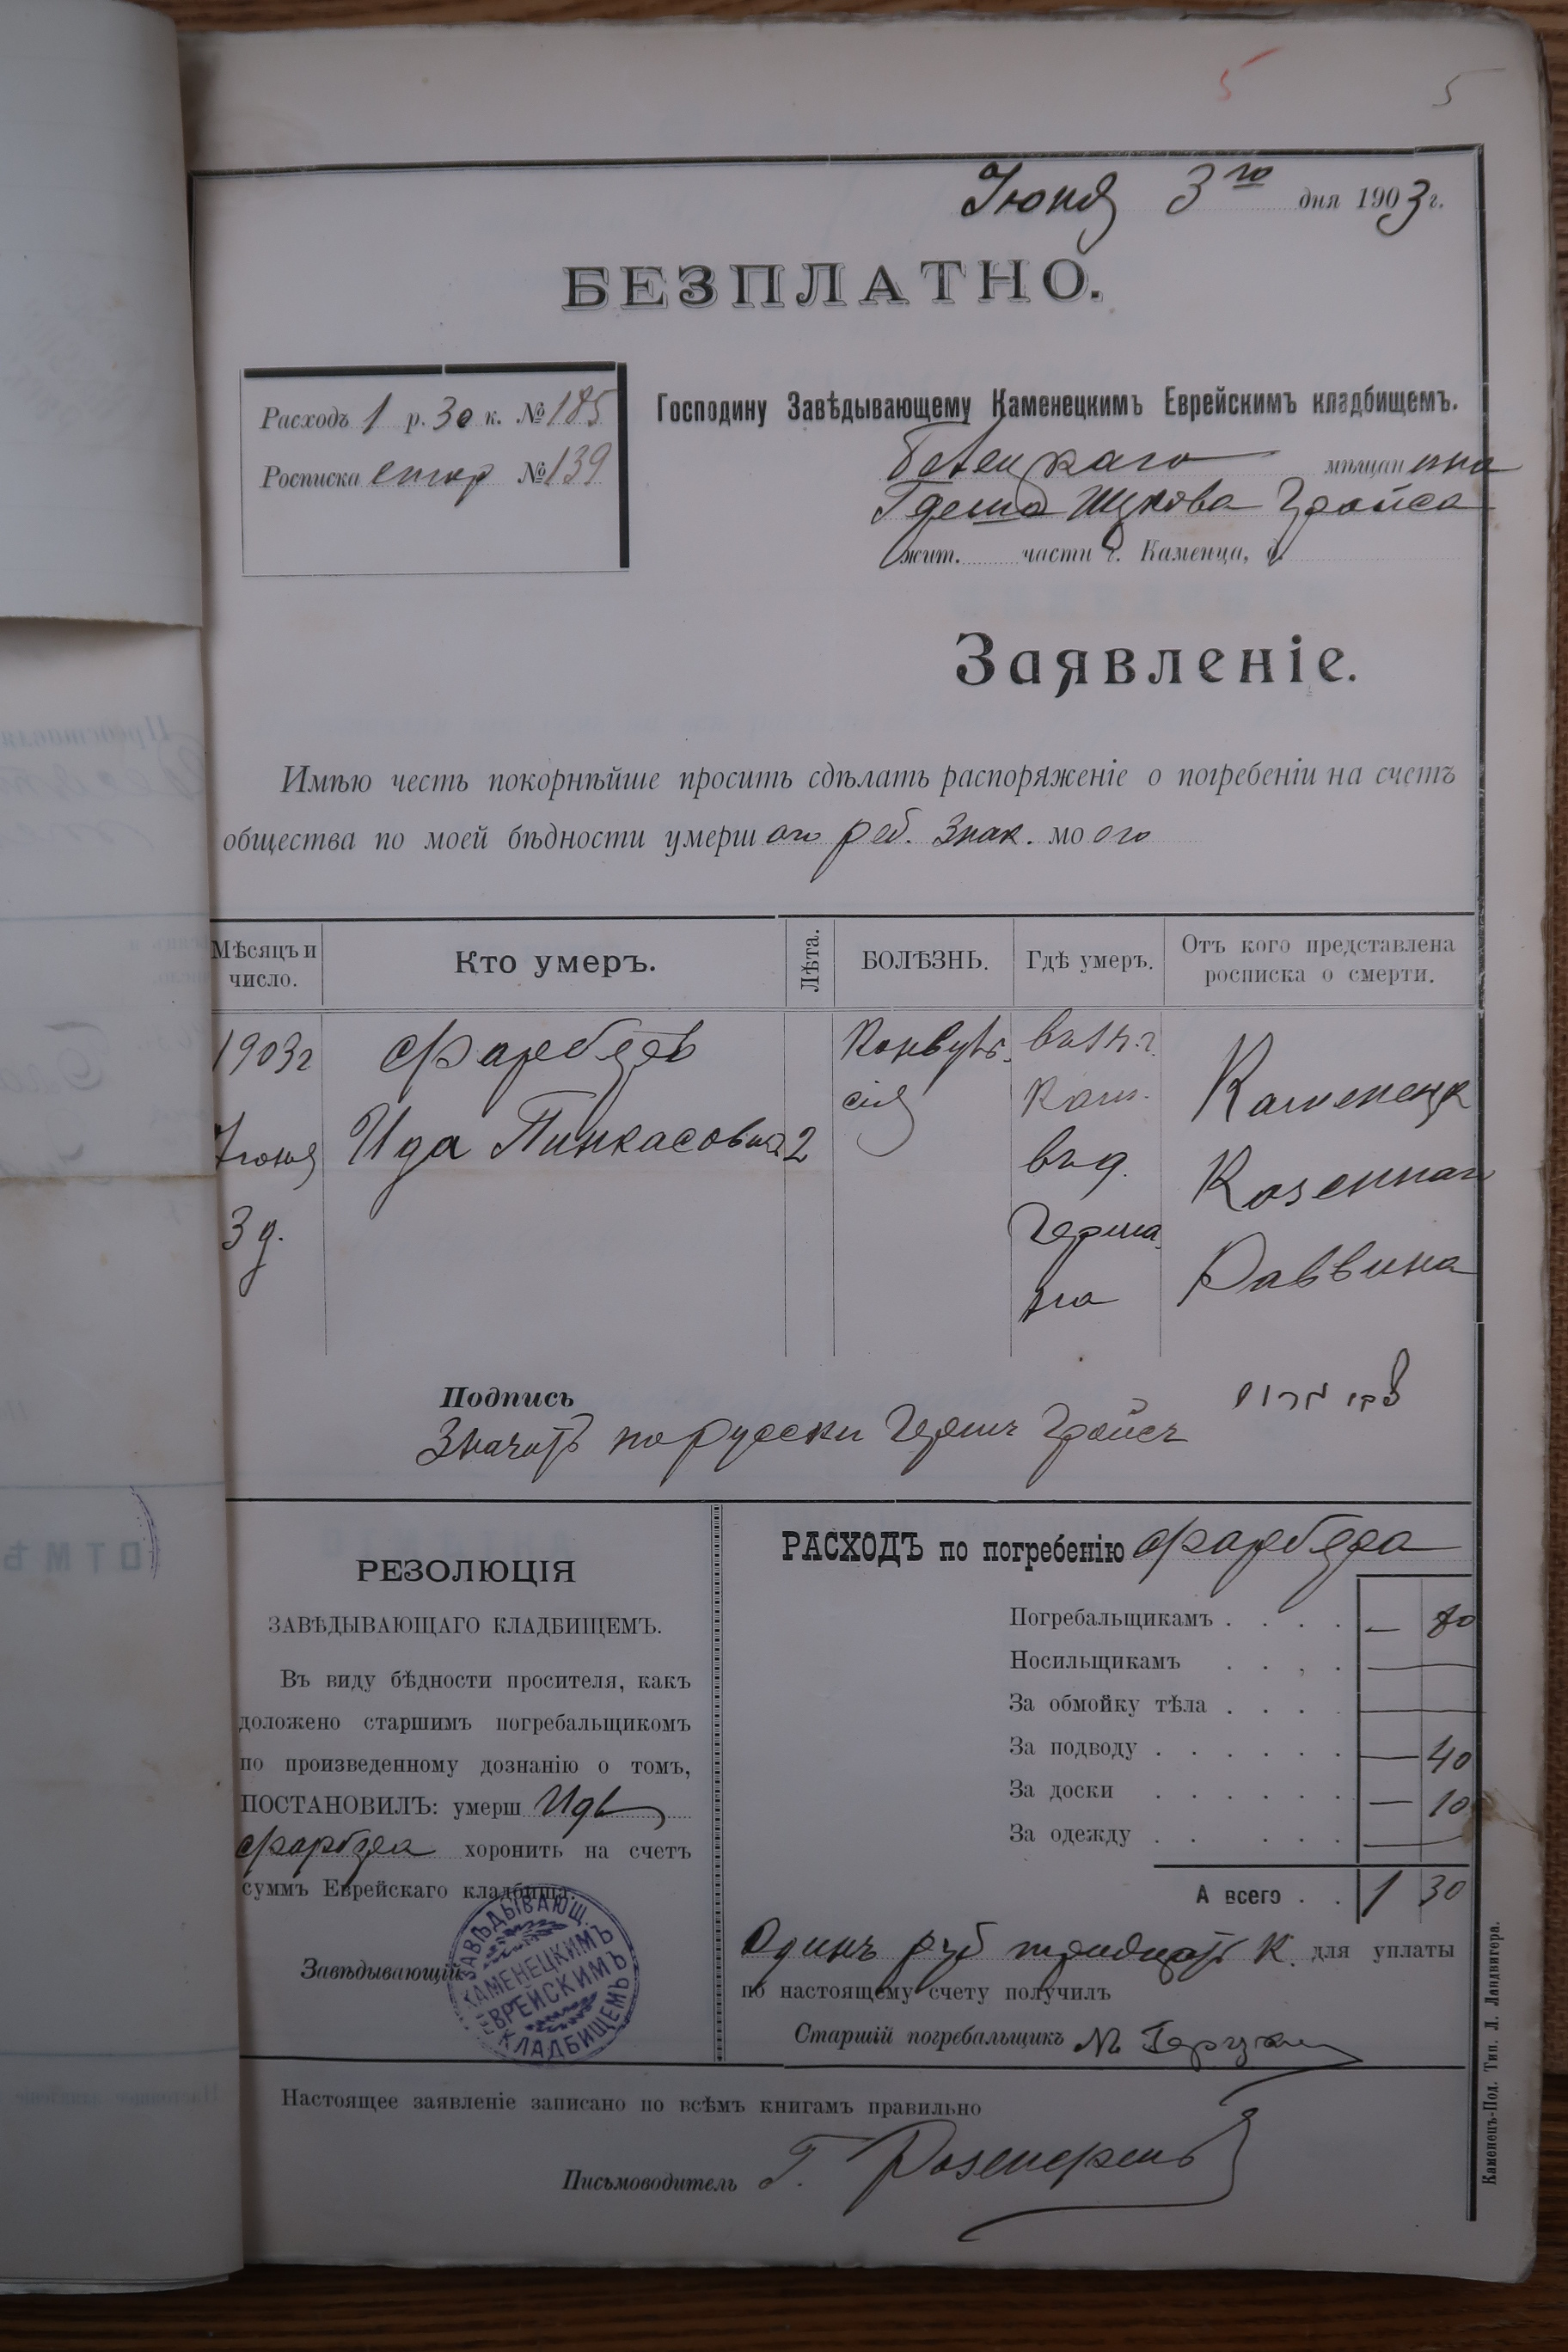 5 5
Іюня 3го дня 1903 г.
БЕЗПЛАТНО.
Расходъ 1 р. 30 к. № 185
Росписка № 139
Господину Завѣдывающему Каменецкимъ Еврейскимъ кладбищемъ.
мѣщанина
Грейса
жит. части г. Каменца, д.
Заявленіе.
Имѣю честь покорнѣйше просить сдѣлать распоряженіе о погребеніи на счетъ
общества по моей бѣдности умершаго реб. знак. моего
Мѣсяцъ и число.
Кто умеръ.
Лѣта.
БОЛѢЗНЬ.
Гдѣ умеръ.
Отъ кого представлена росписка о смерти.
1903 г
Іюня
3 д.
Ида Пинкасовна
2
Конвуль-
сія
Кам.
въ д.
Герша
Каменецк
Казеннаго
Раввина
Подпись
Значитъ по русски Гершъ Грейсъ
РЕЗОЛЮЦІЯ
ЗАВѢДЫВАЮЩАГО КЛАДБИЩЕМЪ.
Въ виду бѣдности просителя, какъ
доложено старшимъ погребальщикомъ
по произведенному дознанію о томъ,
ПОСТАНОВИЛЪ: умерш Иды
хоронить на счетъ
суммъ Еврейскаго кладбища.
Завѣдывающій
ЗАВѢДЫВАЮЩ.
КАМЕНЕЦКИМЪ
ЕВРЕЙСКИМЪ
КЛАДБИЩЕМЪ
РАСХОДЪ по погребенію
Погребальщикамъ . . . . — 80
Носильщикамъ . . , . —
За обмойку тѣла . . . . —
За подводу . . . . . . — 40
За доски . . . . . . — 10
За одежду . . . . . —
А всего . . 1 30
Одинъ руб тридцать к. для уплаты
по настоящему счету получилъ
Старшій погребальщикъ М.
Настоящее заявленіе записано по всѣмъ книгамъ правильно
Письмоводитель Г.
Каменецъ-Под. Тип. Л. Ландвигера.